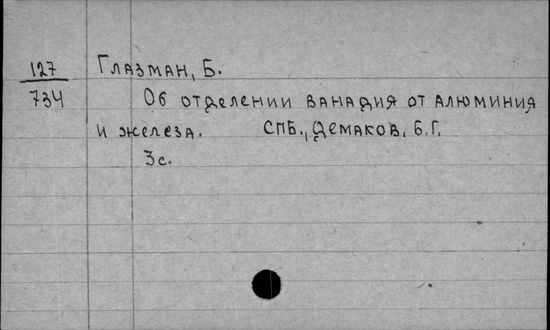 127
734
Глазман, Б.
Об отделении ванадия от алюминия
и железа. СПБ., Демаков, б.г.
3с.